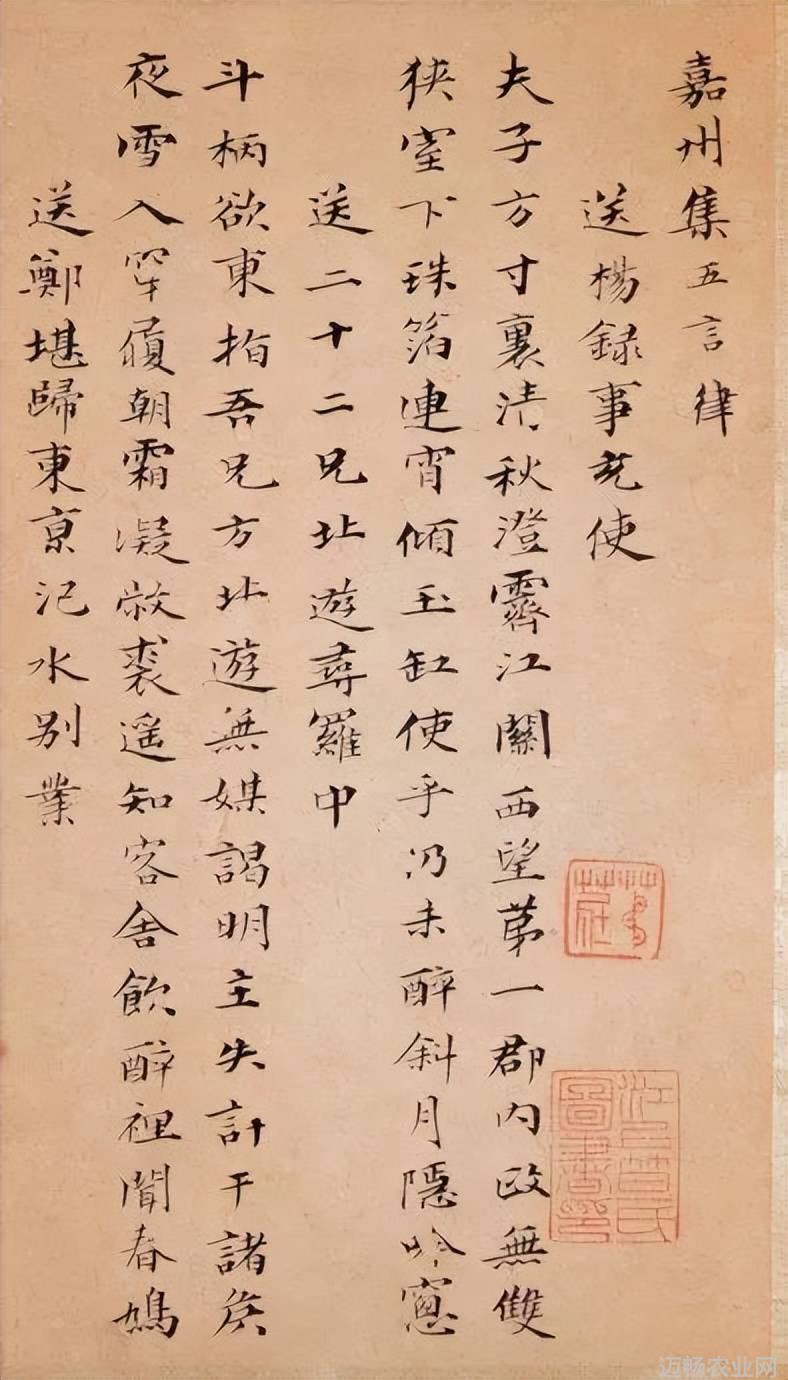 嘉州集五言律
送楊録事充使
夫子方寸裏清秋澄霽江關西望苐一郡内政無雙
狹室下珠箔連宵傾玉缸使乎仍未醉斜月隱吟窻
送二十二兄北遊尋羅中
斗柄欲東指吾兄方北遊無媒謁明主失計干諸侯
夜雪入穿履朝霜凝敝裘遥知客舍飲醉裡聞春鳩
送鄭堪歸東京汜水别業
江上笪氏圖書印
迈畅农业网